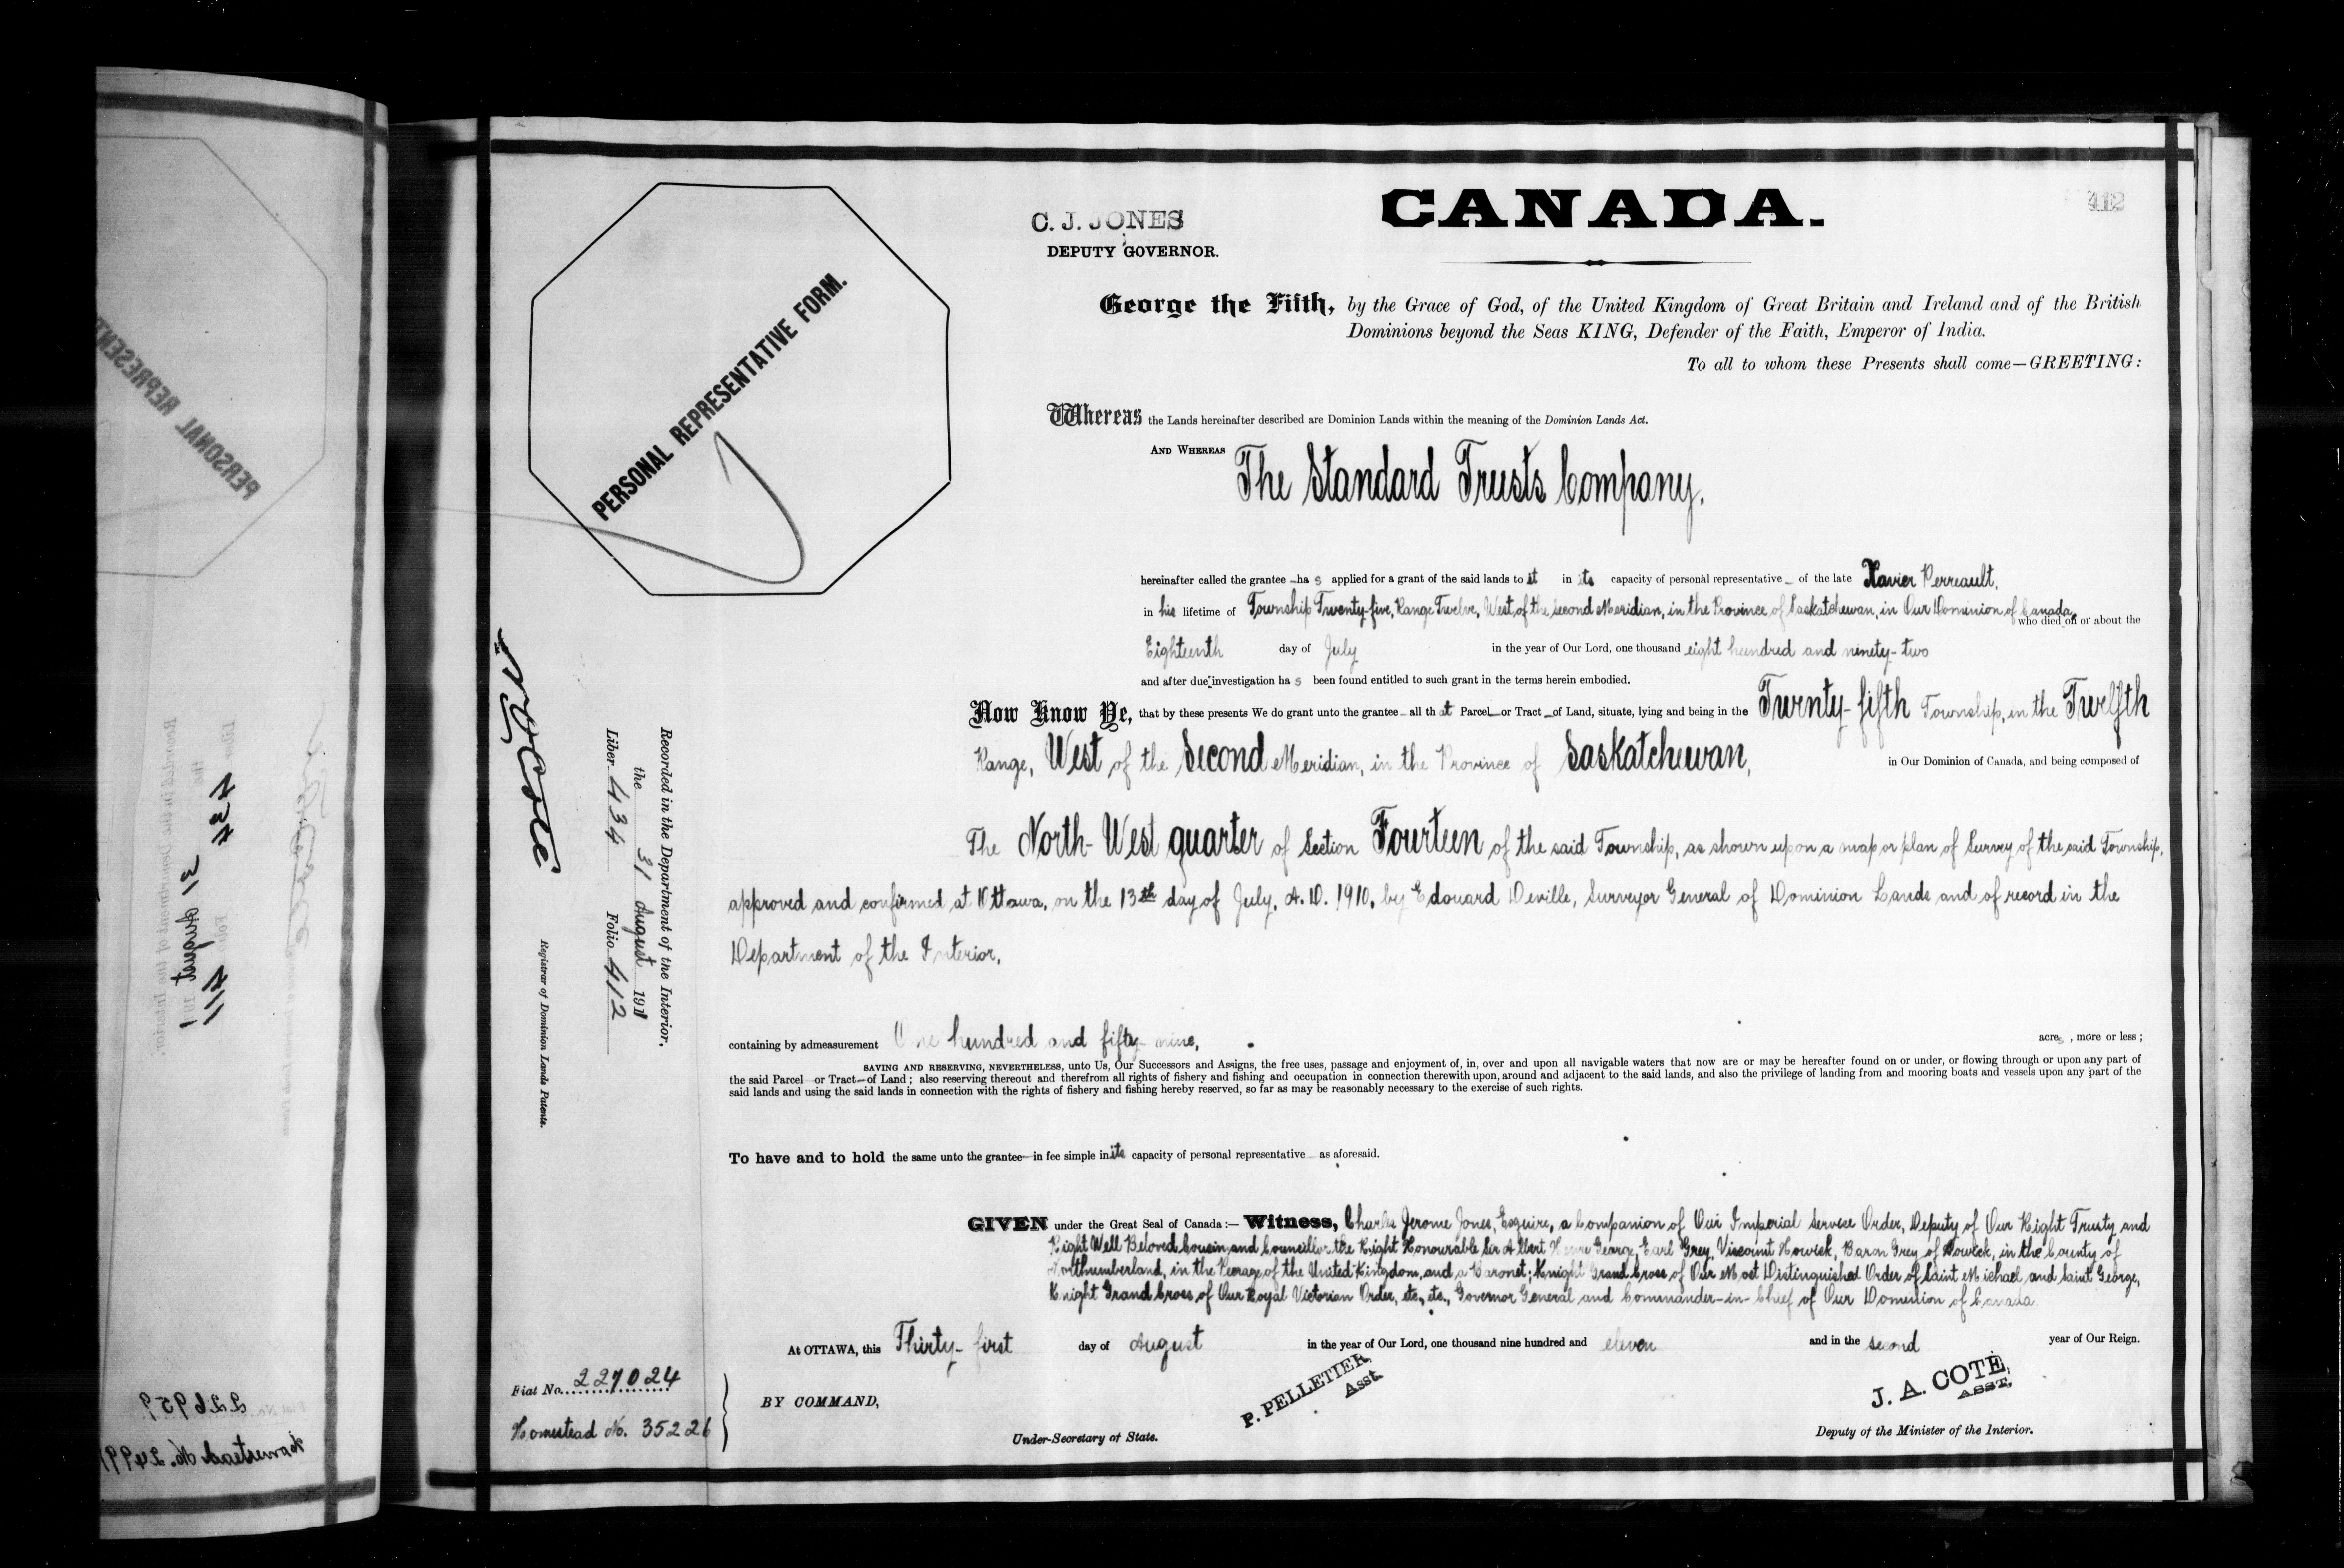 412
C. J. JONES
DEPUTY GOVERNOR.
CANADA.
PERSONAL REPRESENTATIVE FORM.
George the Fifth, by the Grace of God, of the United Kingdom of Great Britain and Ireland and of the British
Dominions beyond the Seas KING, Defender of the Faith, Emperor of India.
To all to whom these Presents shall come—GREETING:
Whereas the Lands hereinafter described are Dominion Lands within the meaning of the Dominion Lands Act.
AND WHEREAS The Standard Trusts Company,
hereinafter called the grantee has applied for a grant of the said lands to it in its capacity of personal representative of the late Xavier Perreault,
in his lifetime of Township Twenty-five, Range Twelve, West of the Second Meridian, in the Province of Saskatchewan, in Our Dominion of Canada,
who died on or about the
Eighteenth day of July in the year of Our Lord, one thousand eight hundred and ninety-two
and after due investigation has been found entitled to such grant in the terms herein embodied.
Now Know Ye, that by these presents We do grant unto the grantee all that Parcel or Tract of Land, situate, lying and being in the Twenty-fifth Township, in the Twelfth
Range, West of the Second Meridian, in the Province of Saskatchewan, in Our Dominion of Canada, and being composed of
The North-West quarter of Section Fourteen of the said Township, as shown upon a map or plan of Survey of the said Township,
approved and confirmed at Ottawa, on the 13th day of July, A.D. 1910, by Edouard Deville, Surveyor General of Dominion Lands and of record in the
Department of the Interior,
containing by admeasurement One hundred and fifty-nine, acres, more or less;
SAVING AND RESERVING, NEVERTHELESS, unto Us, Our Successors and Assigns, the free uses, passage and enjoyment of, in, over and upon all navigable waters that now are or may be hereafter found on or under, or flowing through or upon any part of
the said Parcel or Tract of Land; also reserving thereout and therefrom all rights of fishery and fishing and occupation in connection therewith upon, around and adjacent to the said lands, and also the privilege of landing from and mooring boats and vessels upon any part of the
said lands and using the said lands in connection with the rights of fishery and fishing hereby reserved, so far as may be reasonably necessary to the exercise of such rights.
To have and to hold the same unto the grantee in fee simple in its capacity of personal representative as aforesaid.
GIVEN under the Great Seal of Canada:— Witness, Charles Jerome Jones, Esquire, a Companion of Our Imperial Service Order, Deputy of Our Right Trusty and
Right Well Beloved Cousin and Councillor the Right Honourable Sir Albert Henry George, Earl Grey, Viscount Howick, Baron Grey of Howick, in the County of
Northumberland, in the Peerage of the United Kingdom, and a Baronet; Knight Grand Cross of Our Most Distinguished Order of Saint Michael and Saint George,
Knight Grand Cross of Our Royal Victorian Order, etc., etc., Governor General and Commander-in-Chief of Our Dominion of Canada
At OTTAWA, this Thirty-first day of August in the year of Our Lord, one thousand nine hundred and eleven and in the second year of Our Reign.
BY COMMAND,
P. PELLETIER,
Asst.
Under-Secretary of State.
J. A. COTÉ,
ASST,
Deputy of the Minister of the Interior.
Recorded in the Department of the Interior,
the 31 August 1911
Liber 434 Folio 412
N O Coté
Registrar of Dominion Lands Patents.
Fiat No. 227024
Homestead No. 35226
PERSONAL REPRESENT
Recorded in the Department of the Interior,
the 31 August 1911
Liber 434 Folio 411
Fiat No. 226959
Homestead No. 24991